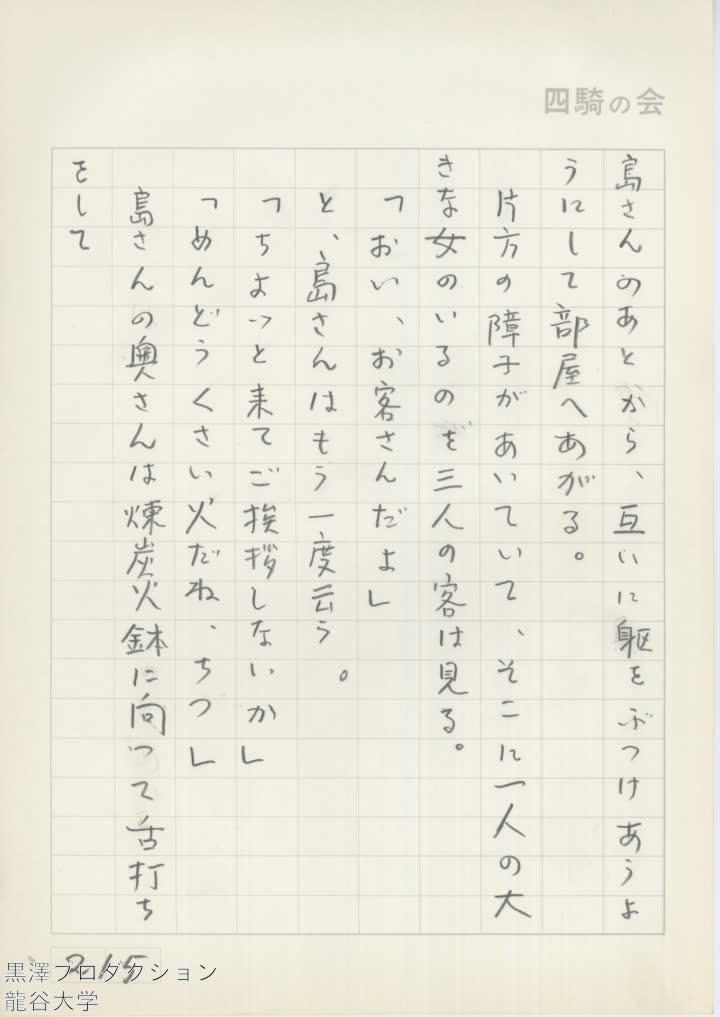 四騎の会
島さんのあとから、互いに躯をぶつけあうよ
うにして部屋へあがる。
片方の障子があいていて、そこに一人の大
きな女のいるのを三人の客は見る。
「おい、お客さんだよ」
と、島さんはもう一度云う。
「ちよっと来てご挨拶しないか」
「めんどうくさい火だね、ちつ」
島さんの奥さんは煉炭火鉢に向つて舌打ち
をして
215
黒澤プロダクション
龍谷大学